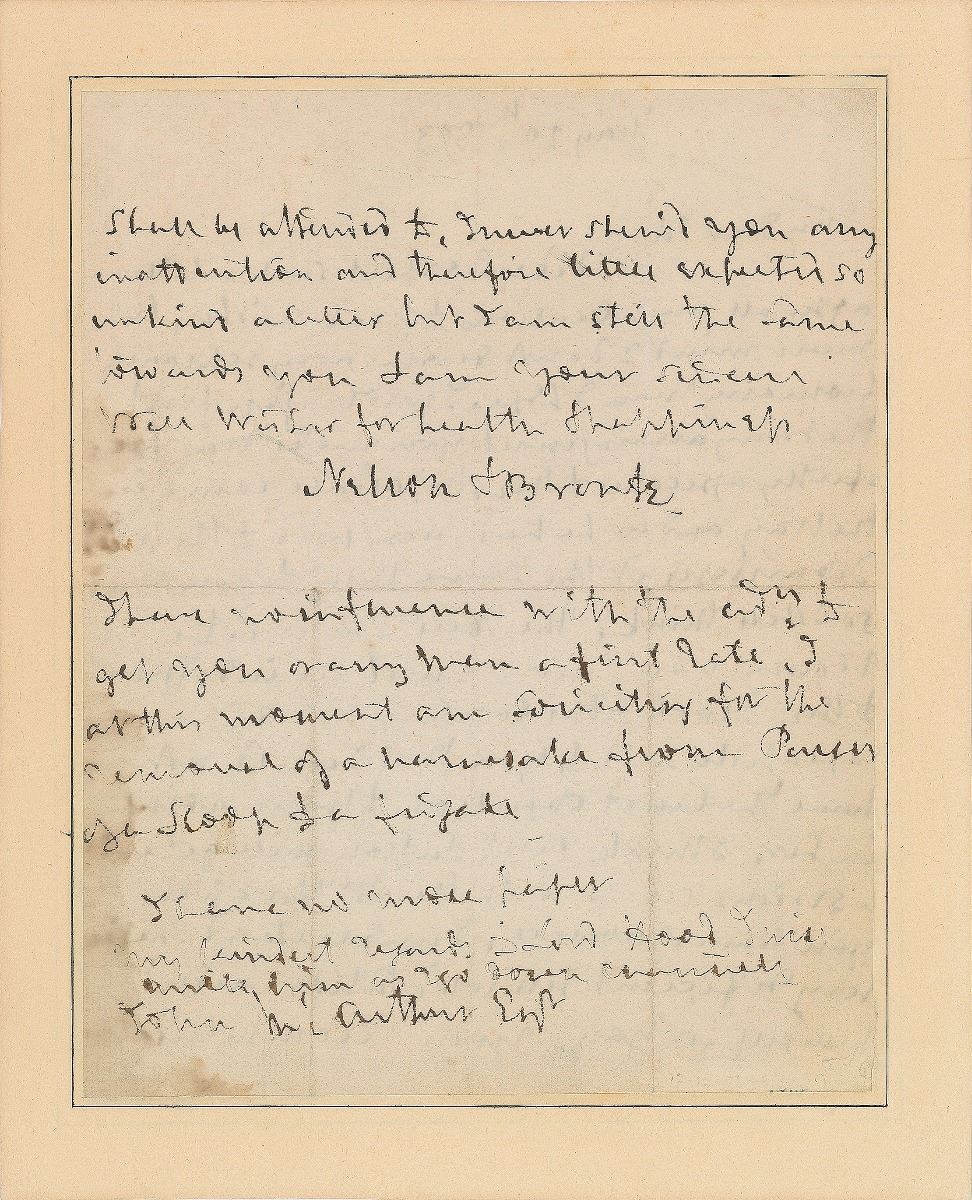 shall be attended to, I never shew'd you any
inattention and therefore little expected so
unkind a letter but I am still the same
towards you I am your sincere
Well Wisher for health & happiness
Nelson & Bronte
I have no influence with the adty. to
get you or any Man a first Rate, I
at this moment am soliciting for the
removal of a namesake from Purser
of a Sloop to a frigate
I have no more paper
my kindest regards to Lord Hood I will
write him as I go down channel
John Mc Arthur Esqr